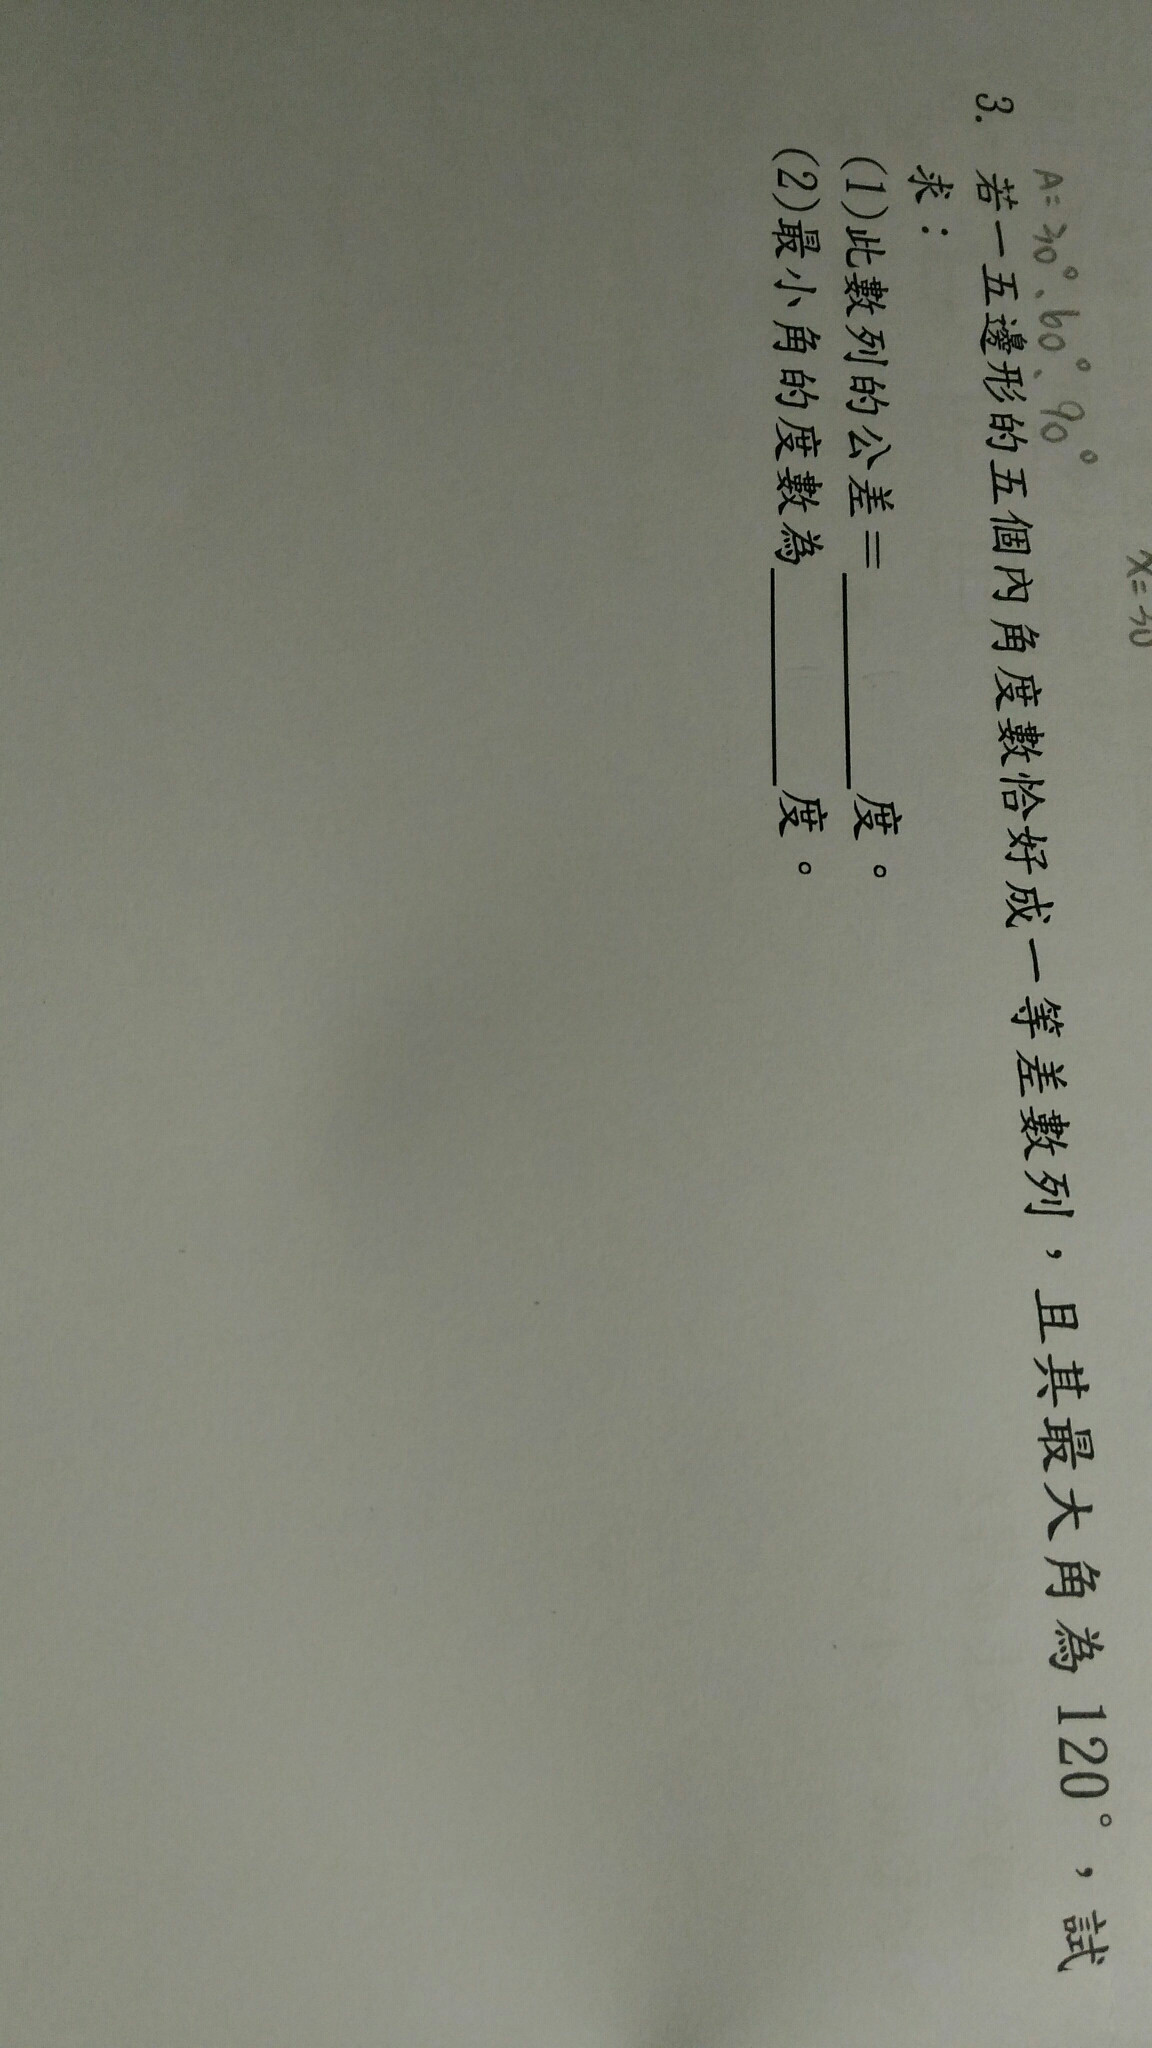 x=30
A=30°、60°、90°
3. 若一五邊形的五個內角度數恰好成一等差數列，且其最大角為120°，試
求：
(1)此數列的公差＝______度。
(2)最小角的度數為______度。